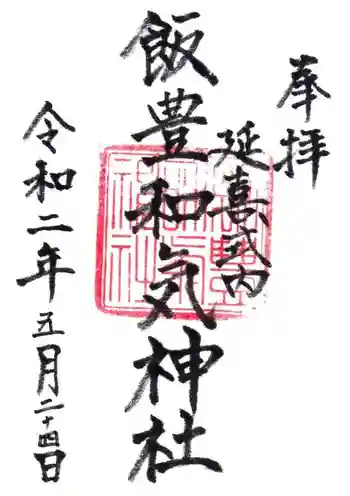 奉拝
延喜式内
飯豊和気神社
令和二年五月二十四日